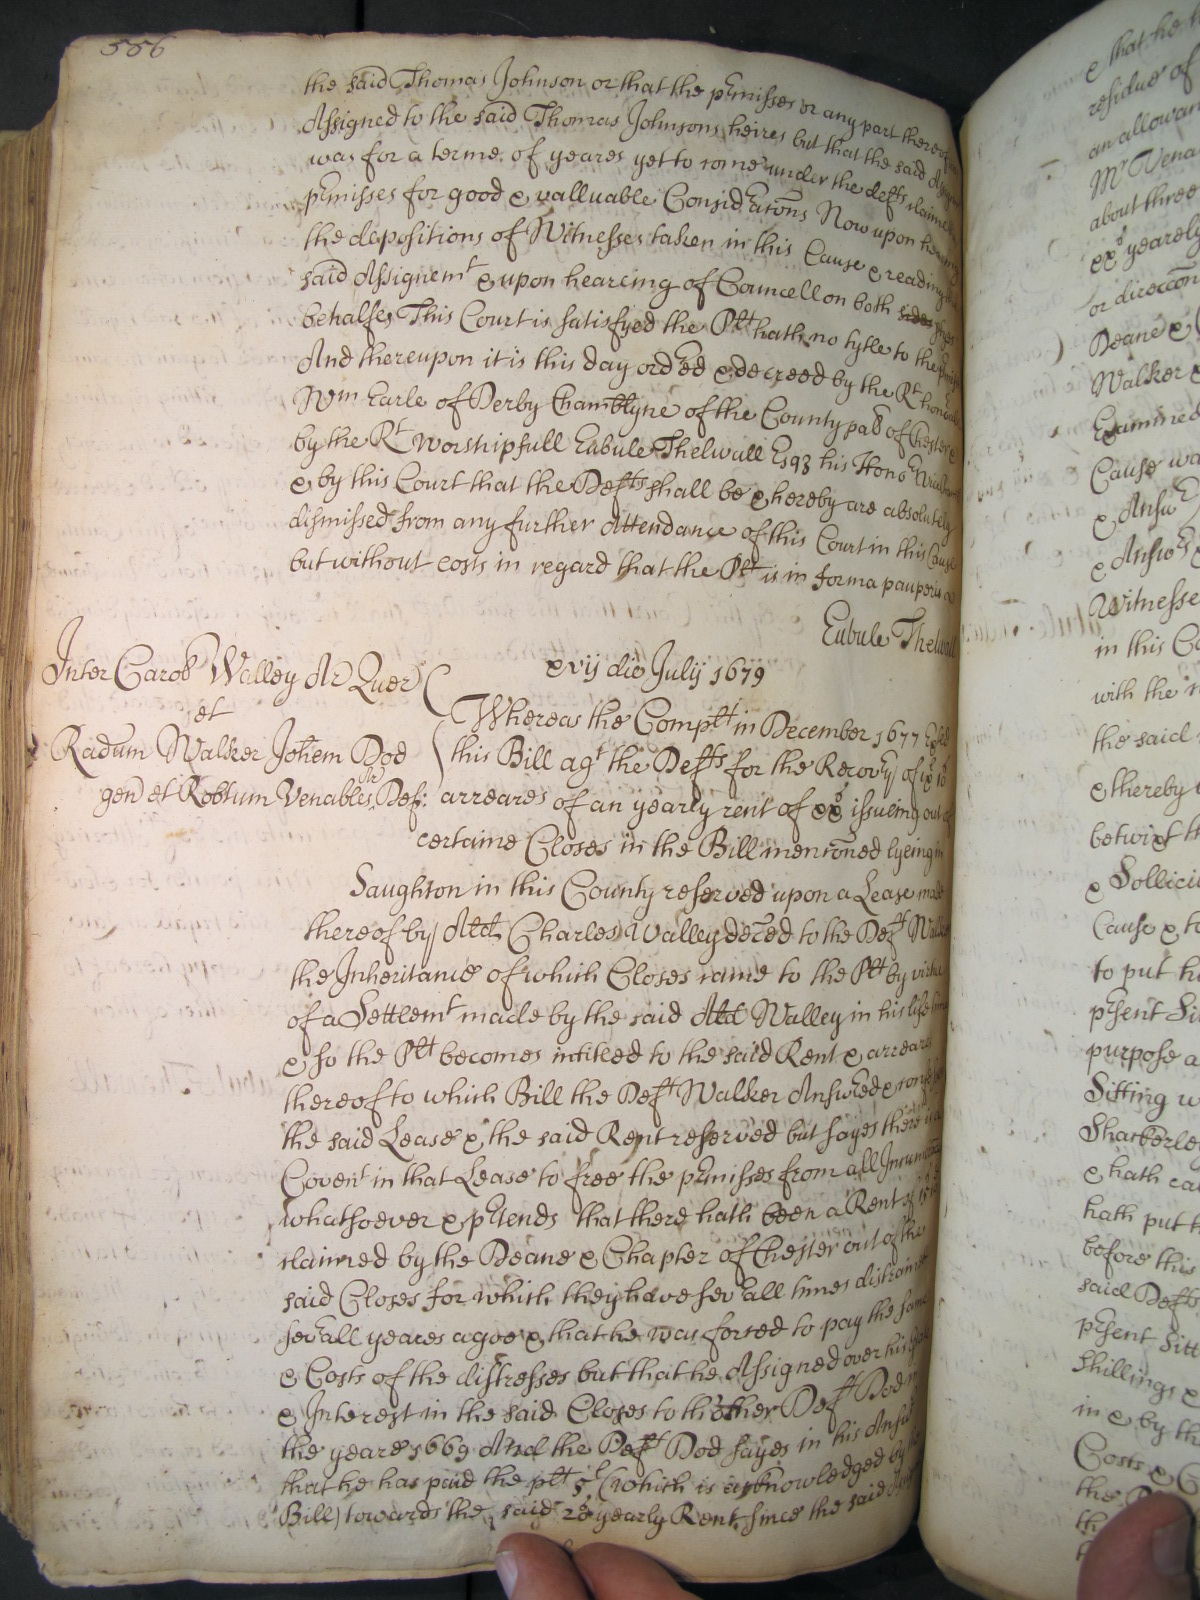 556
the said Thomas Johnson or that the p'misses or any part thereof
Assigned to the said Thomas Johnsons heires but that the said
was for a terme of yeares yet to come under the defts claime
p'misses for good & valluable Considerac̃ons Now upon
the depositions of Witnesses taken in this Cause & reading
said Assignemt & upon hearcing of Councell on both sides
behalfes This Court is satisfyed the Plt hath no tytle to the
And thereupon it is this day ordered & decreed by the Rt hono
Wm Earle of Derby Chamb'lyne of the County pal' of Chester &
by the Rt Worshipfull Eubule Thelwall Esq3 his Hono
& by this Court that the Defts shall be & hereby are absolutely
dismissed from any further Attendance of this Court in this Cause
but without costs in regard that the Plt is in forma pauperis
Eubule Thelwall
xvij die July 1679
Inter Carol' Walley Ar' Quer'
et
Radum Walker Joh'em Dod
gen' et Robtum Venables Ar' Def:
Whereas the Complt in December 1677
this Bill agt the Defts for the Recov'y of
arreares of an yearly rent of xxs issueing out of
certaine Closes in the Bill menc̃oned lyeing in
Saughton in this County reserved upon a Lease made
thereof by Charles Walley deced to the Deft
the Inheritance of which Closes came to the Plt by virtue
of a Settlemt made by the said Walley in his life time
& so the Plt becomes intitled to the said Rent & arreares
thereof to which Bill the Deft Walker Answ'ed &
the said Lease & the said Rent reserved but sayes there is a
Covent in that Lease to free the p'misses from all
whatsoever & p'tends that there hath been a Rent of
claimed by the Deane & Chapter of Chester out of the
said Closes for which they have sev'all times distrained
sev'all yeares agoe & that he was forced to pay the same
& Costs of the distresses but that he Assigned over his
& Interest in the said Closes to th'other Deft Dod in
the yeare 1669 And the Deft Dod sayes in his Answ'
that he has paid the plt 5l (which is acknowledged by
Bill) towards the said 20s yearly Rent since the said
& that he
residue of
an allowan
Mr Vena
about three
xxs yearely
or direcc̃on
Deane &
Walker &
Examined
Cause wa
& Answ'
& Answ's
Witnesse
in this
with the
the said
& thereby
betwixt th
& Sollici
Cause & to
to put
p'sent Si
purpose a
Sitting w
Shackerle
& hath ca
hath put
before this
said Defts
p'sent Sitt
Shillings &
in & by th
Costs &
the